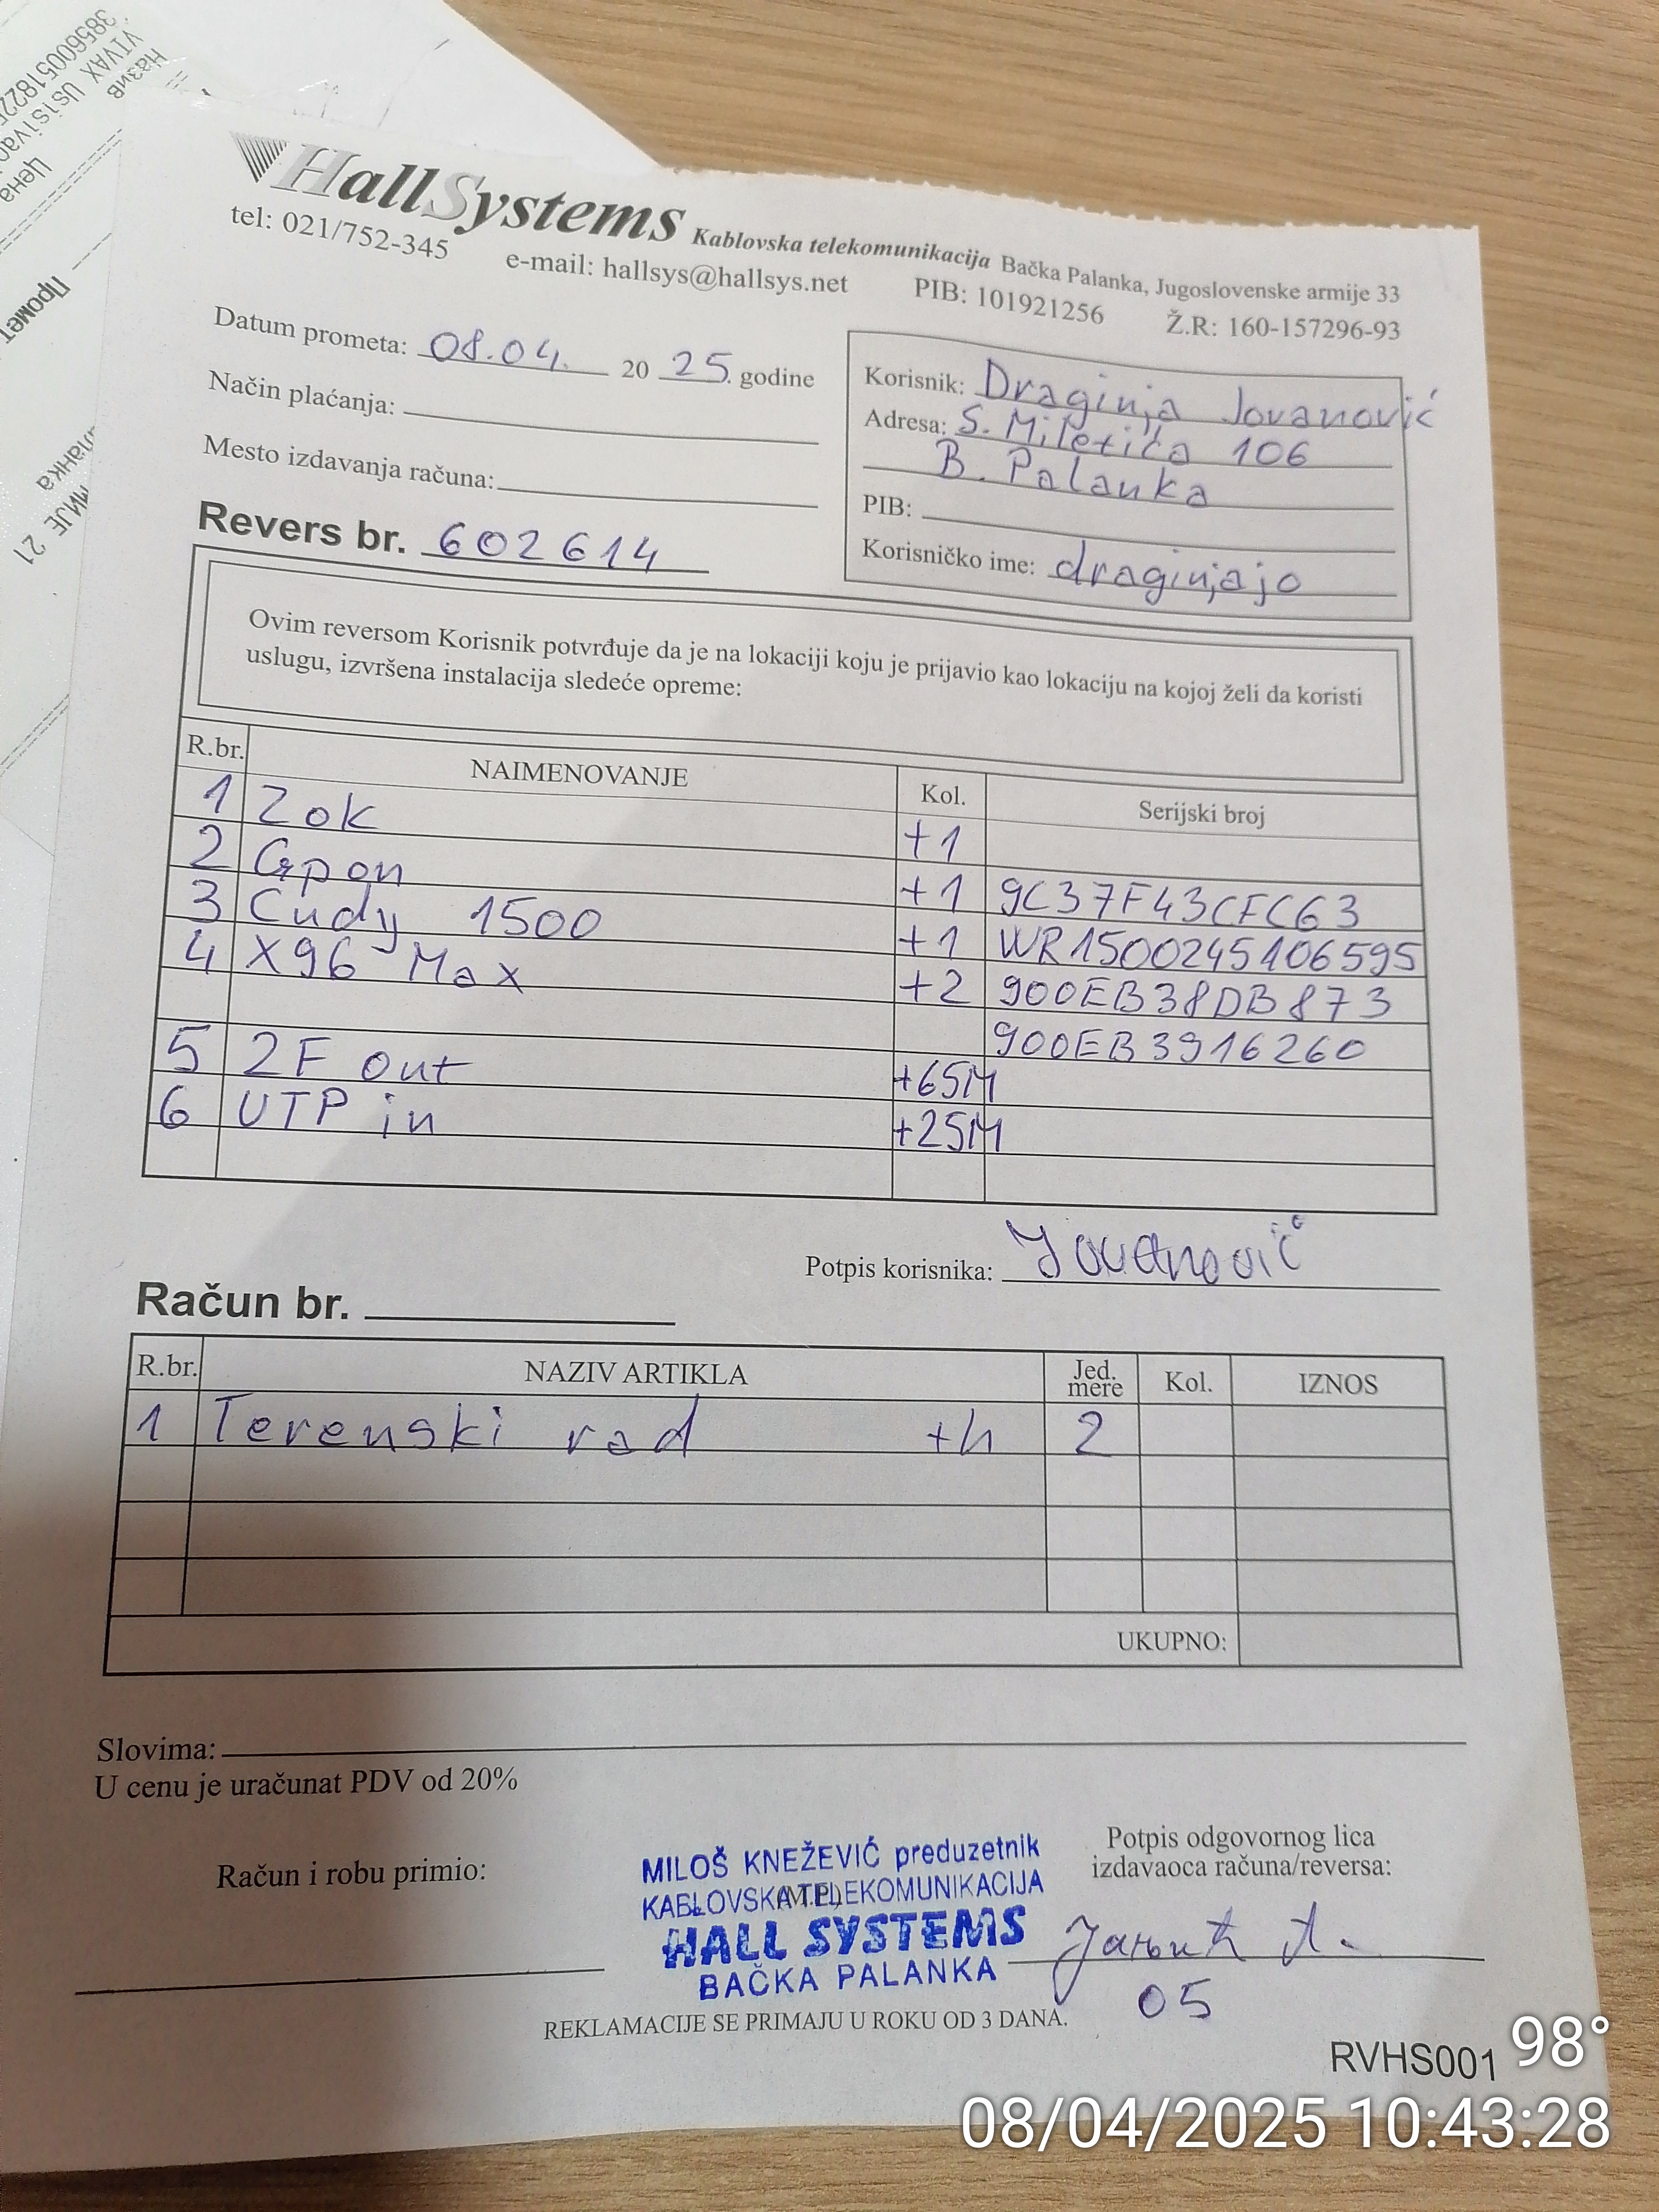 HallSystems Kablovska telekomunikacija Bačka Palanka, Jugoslovenske armije 33
tel: 021/752-345 e-mail: hallsys@hallsys.net PIB: 101921256 Ž.R: 160-157296-93
Datum prometa: 08.04. 20 25. godine
Način plaćanja:
Mesto izdavanja računa:
Revers br. 602614
Korisnik: Draginja Jovanović
Adresa: S. Miletića 106
B. Palanka
PIB:
Korisničko ime: draginjajo
Ovim reversom Korisnik potvrđuje da je na lokaciji koju je prijavio kao lokaciju na kojoj želi da koristi
uslugu, izvršena instalacija sledeće opreme:
R.br. NAIMENOVANJE Kol. Serijski broj
1 Zok +1
2 Gpon +1 9C37F43CFC63
3 Cudy 1500 +1 WR1500245106595
4 X96 Max +2 900EB38DB873
900EB3916260
5 2F out +65M
6 UTP in +25M
Potpis korisnika: Jovanović
Račun br.
R.br. NAZIV ARTIKLA Jed. mere Kol. IZNOS
1 Terenski rad +h 2
UKUPNO:
Slovima:
U cenu je uračunat PDV od 20%
Račun i robu primio:
MILOŠ KNEŽEVIĆ preduzetnik
KABLOVSKA TELEKOMUNIKACIJA
(M.P.)
HALL SYSTEMS
BAČKA PALANKA
Potpis odgovornog lica
izdavaoca računa/reversa:
05
REKLAMACIJE SE PRIMAJU U ROKU OD 3 DANA.
RVHS001
98°
08/04/2025 10:43:28
VIVAX
Назив
Цена
Промет
21